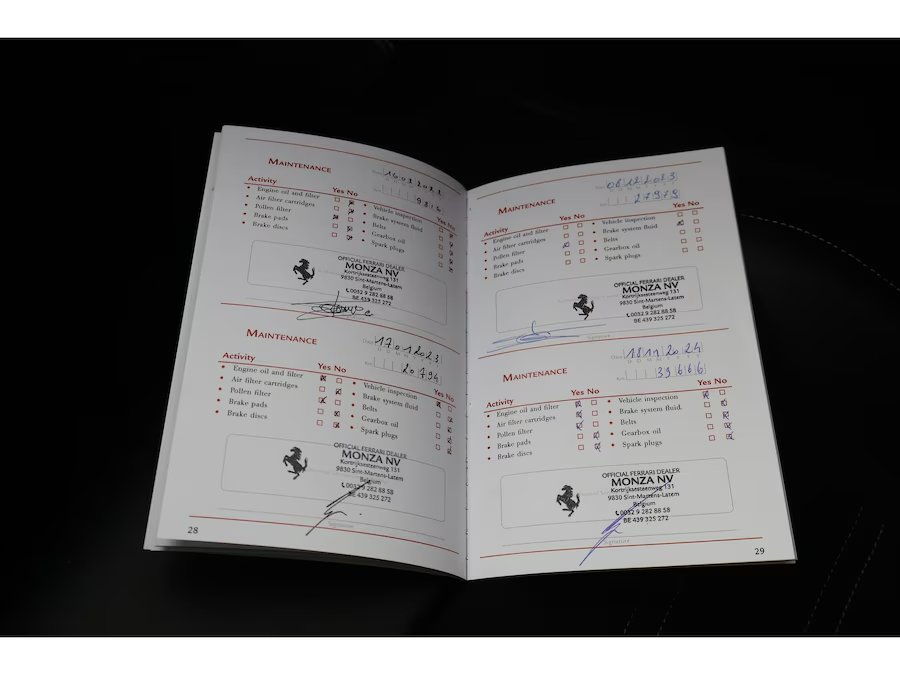 MAINTENANCE
Date
9816
Activity
Yes No
Engine oil and filter
Air filter cartridges
Pollen filter
Brake pads
Brake discs
Yes No
Vehicle inspection
Brake system fluid
Belts
Gearbox oil
Spark plugs
OFFICIAL FERRARI DEALER
MONZA NV
Kortrijksesteenweg 131
9830 Sint-Martens-Latem
Belgium
0032 9 282 88 58
BE 439 325 272
MAINTENANCE
Date 17012023
Km 20794
Activity
Yes No
Engine oil and filter
Air filter cartridges
Pollen filter
Brake pads
Brake discs
Yes No
Vehicle inspection
Brake system fluid
Belts
Gearbox oil
Spark plugs
OFFICIAL FERRARI DEALER
MONZA NV
Kortrijksesteenweg 131
9830 Sint-Martens-Latem
Belgium
0032 9 282 88 58
BE 439 325 272
Signature
28
MAINTENANCE
Date 06122023
27979
Activity
Yes No
Engine oil and filter
Air filter cartridges
Pollen filter
Brake pads
Brake discs
Yes No
Vehicle inspection
Brake system fluid
Belts
Gearbox oil
Spark plugs
OFFICIAL FERRARI DEALER
MONZA NV
Kortrijksesteenweg 131
9830 Sint-Martens-Latem
Belgium
0032 9 282 88 58
BE 439 325 272
Signature
MAINTENANCE
Date 18112024
Km 39666
Activity
Yes No
Engine oil and filter
Air filter cartridges
Pollen filter
Brake pads
Brake discs
Yes No
Vehicle inspection
Brake system fluid
Belts
Gearbox oil
Spark plugs
OFFICIAL FERRARI DEALER
MONZA NV
Kortrijksesteenweg 131
9830 Sint-Martens-Latem
Belgium
0032 9 282 88 58
BE 439 325 272
Signature
29